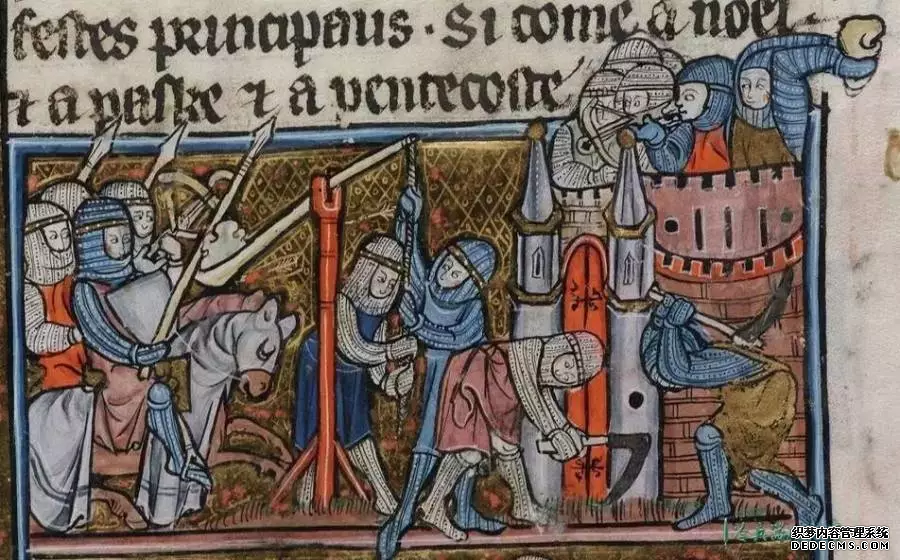 festes principaus · Si come a noel
⁊ a paske ⁊ a pentecoste
织梦内容管理系统
DEDECMS.COM